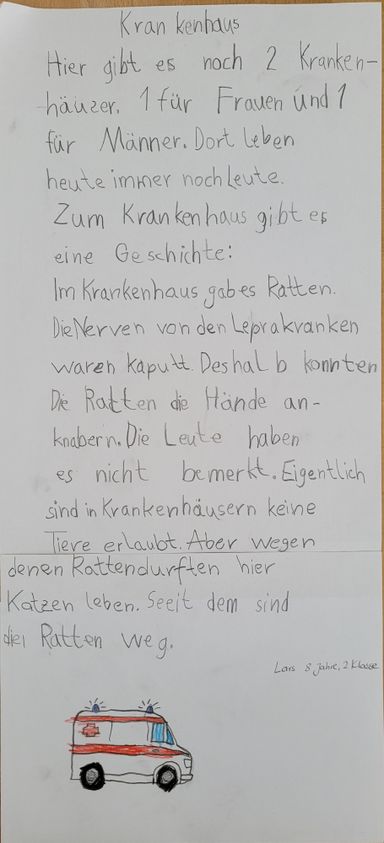 Krankenhaus
Hier gibt es noch 2 Kranken-
häuzer. 1 für Frauen und 1
für Männer. Dort leben
heute immer noch Leute.
Zum Krankenhaus gibt es
eine Geschichte:
Im Krankenhaus gab es Ratten.
Die Nerven von den Leprakranken
waren kaputt. Deshalb konnten
Die Ratten die Hände an-
knabern. Die Leute haben
es nicht bemerkt. Eigentlich
sind in Krankenhäusern keine
Tiere erlaubt. Aber wegen
denen Ratten durften hier
Katzen leben. Seeit dem sind
diei Ratten weg.
Lars 8 Jahre, 2 Klasse